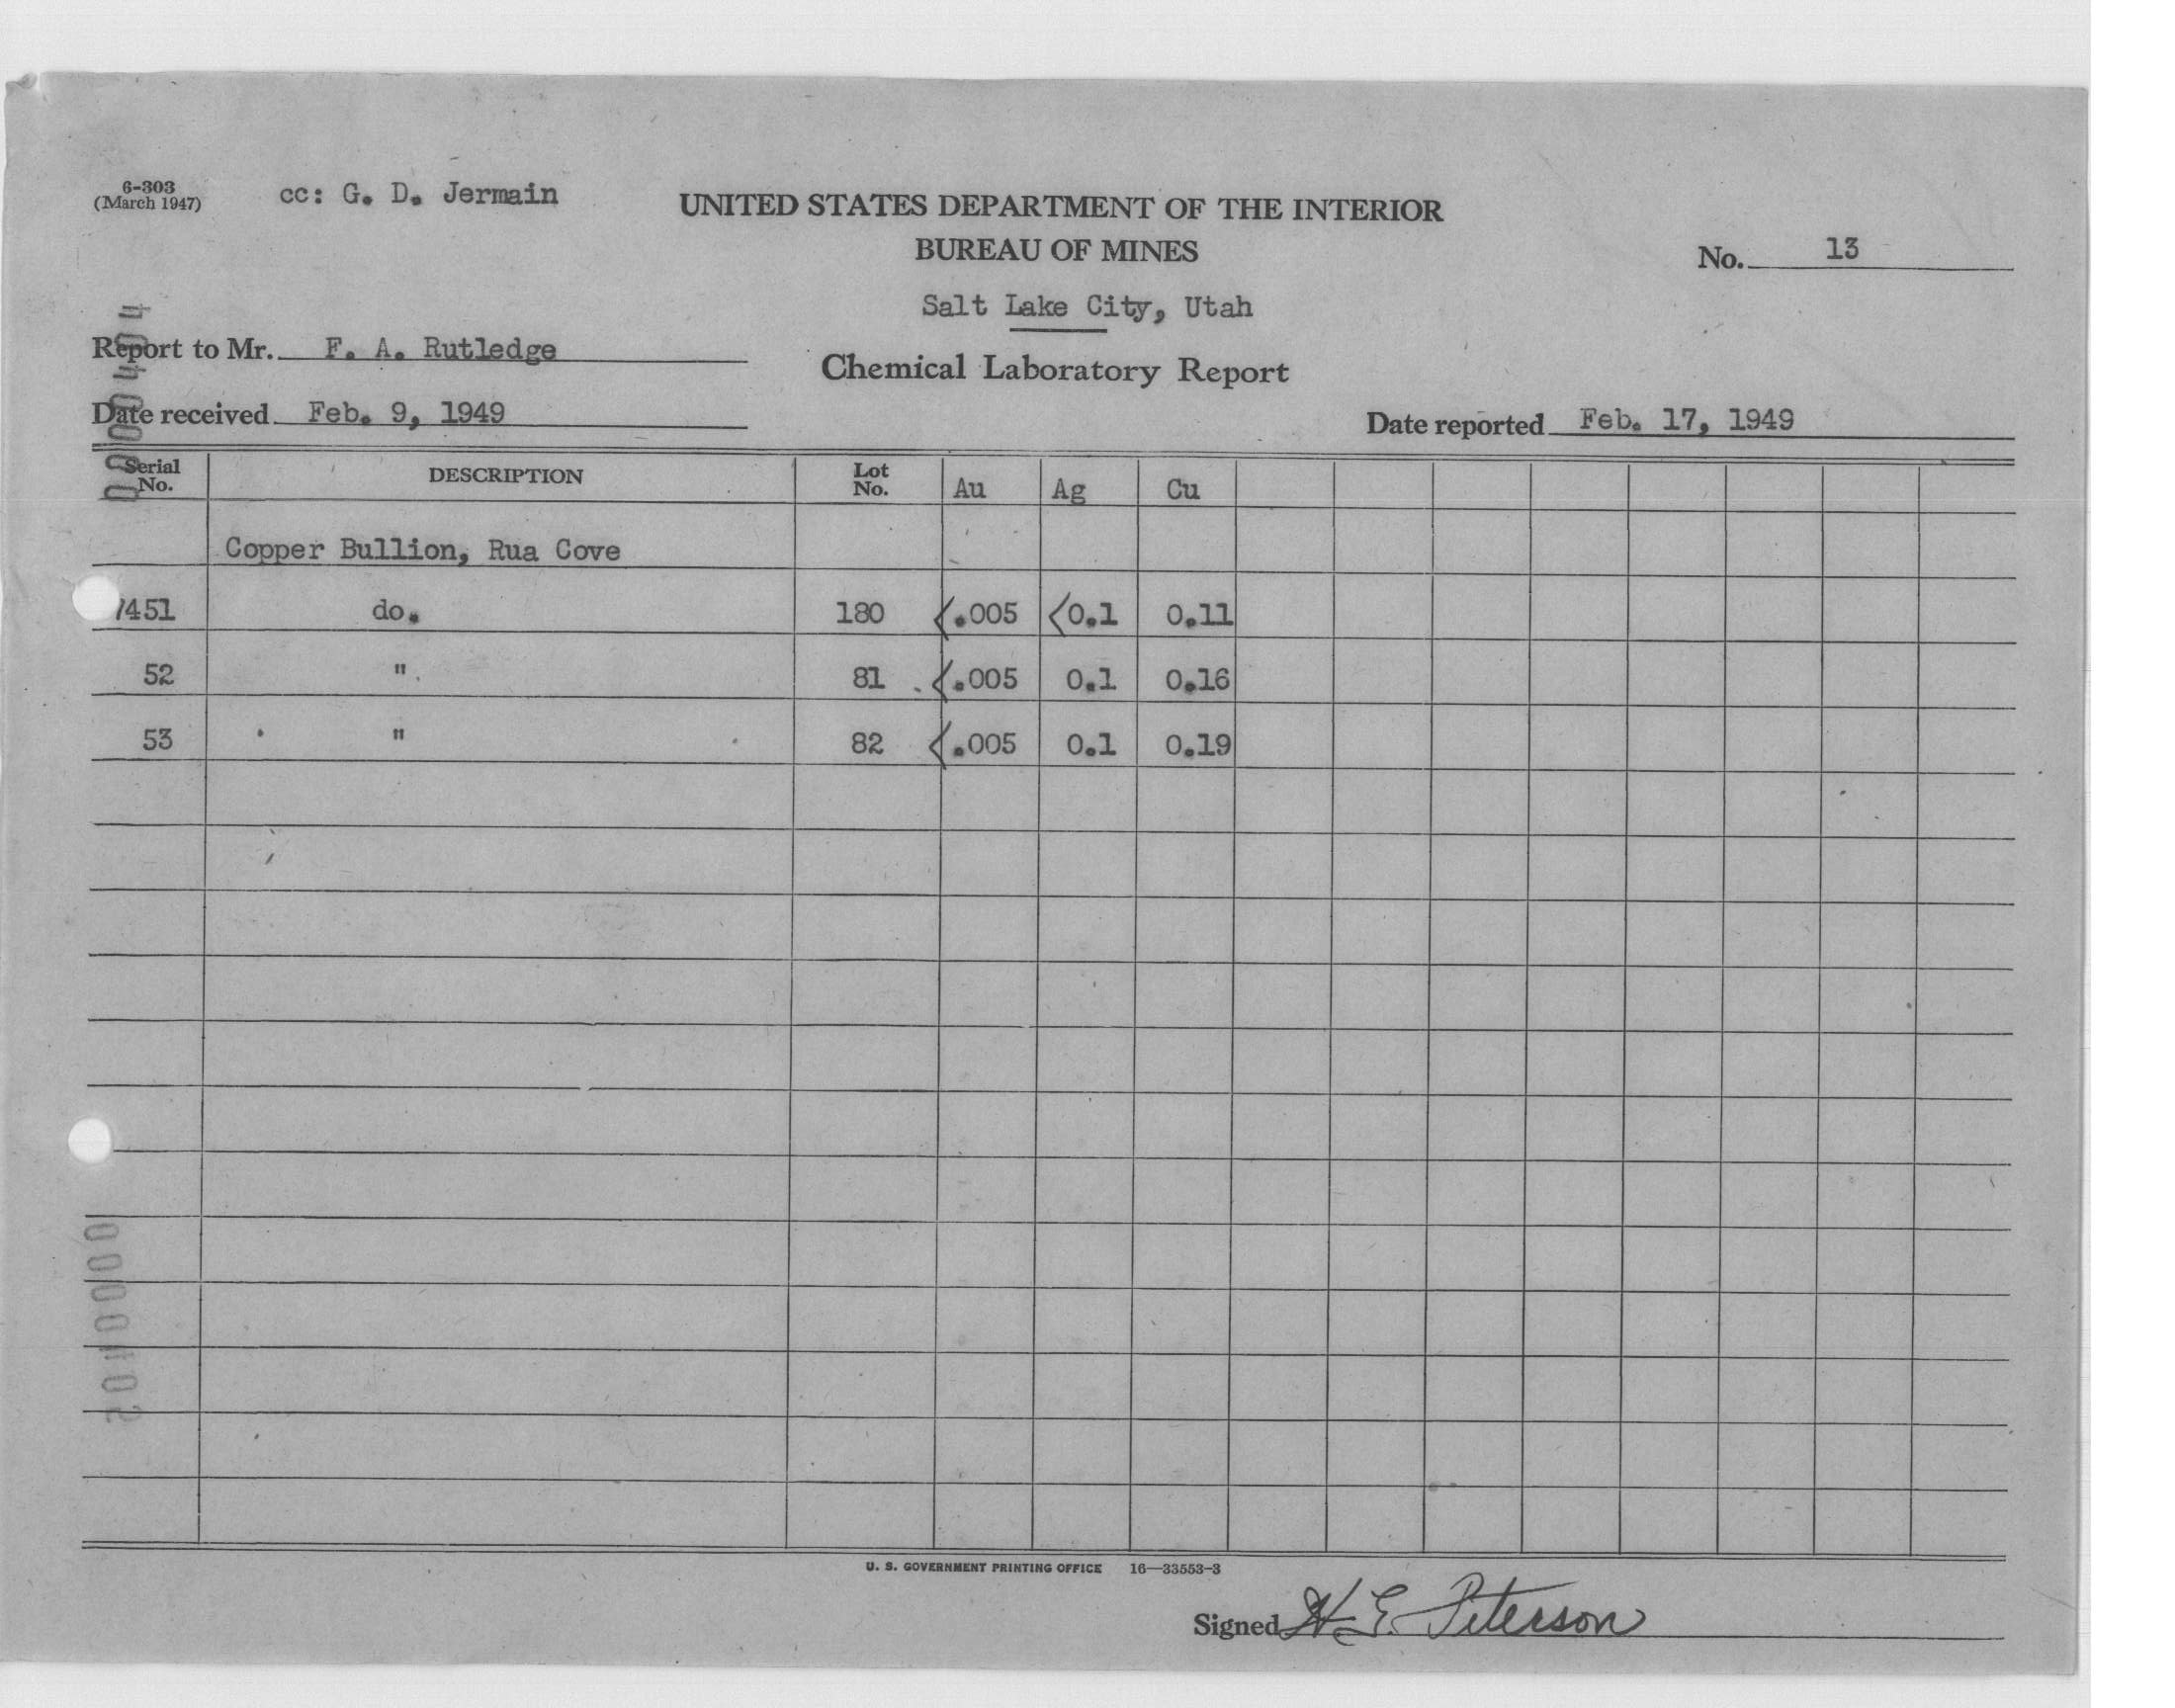 6-303
(March 1947)
cc: G. D. Jermain
UNITED STATES DEPARTMENT OF THE INTERIOR
BUREAU OF MINES
No. 13
Salt Lake City, Utah
Report to Mr. F. A. Rutledge
Chemical Laboratory Report
Date received Feb. 9, 1949
Date reported Feb. 17, 1949
Serial No. DESCRIPTION Lot No. Au Ag Cu
Copper Bullion, Rua Cove
7451 do. 180 <.005 <0.1 0.11
52 " 81 <.005 0.1 0.16
53 " 82 <.005 0.1 0.19
U. S. GOVERNMENT PRINTING OFFICE 16—33553-3
Signed H. E. Peterson